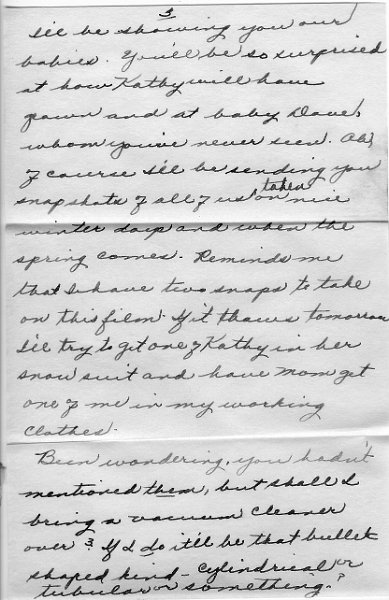 3
I'll be showing you our
babies. You'll be so surprised
at how Kathy will have
grown and at baby Dave,
whom you've never seen. Oh,
of course I'll be sending you
snapshots of all of us taken on nice
winter days and when the
spring comes. Reminds me
that I have two snaps to take
on this film. If it thaws tomorrow
I'll try to get one of Kathy in her
snow suit and have Mom get
one of me in my working
clothes.
Been wondering, you hadn't
mentioned them, but shall I
bring a vacuum cleaner
over? If I do it'll be that bullet
shaped kind - cylindrical or
tubular or something.?